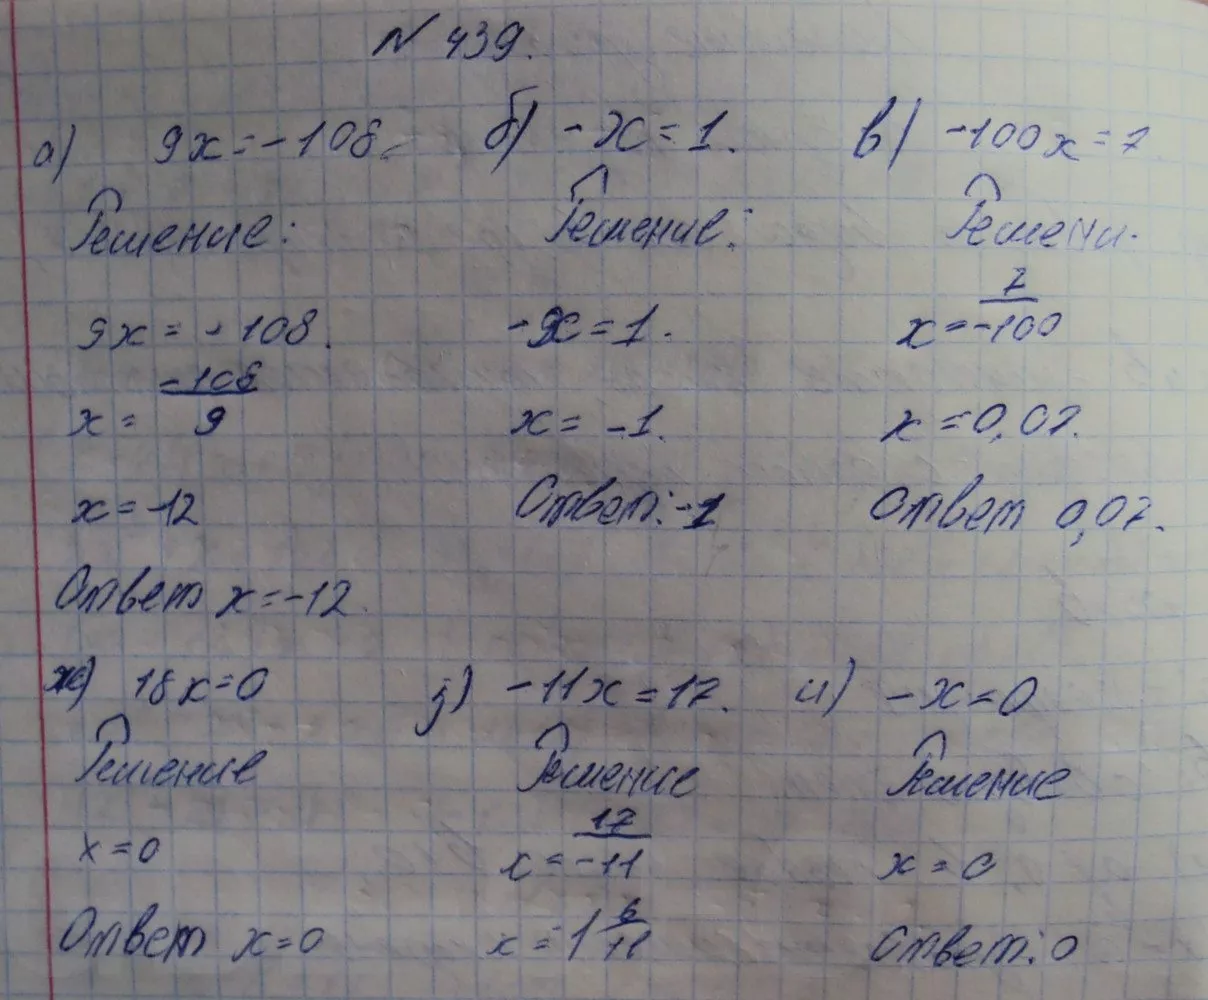 № 439.
а) 9x = -108.
Решение:
9x = -108.
x = -108/9
x = -12
Ответ x = -12.
б) -x = 1.
Решение:
-x = 1.
x = -1.
Ответ: -1
в) -100x = 7
Решени.
x = 7/-100
x = 0,07.
Ответ 0,07.
ж) 18x = 0
Решение
x = 0
Ответ x = 0
з) -11x = 17.
Решение
x = 17/-11
x = 1 6/11
и) -x = 0
Решение
x = 0
Ответ: 0